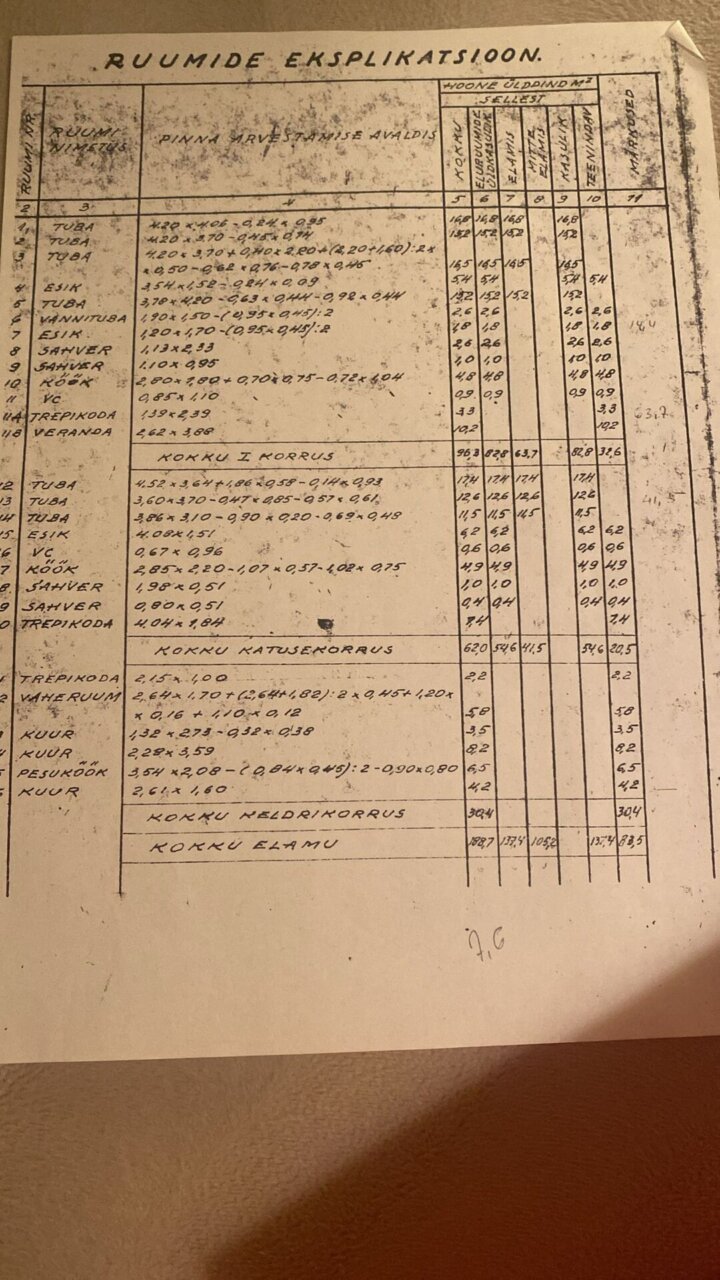 RUUMIDE EKSPLIKATSIOON.
RUUMI NR. RUUMI NIMETUS PINNA ARVESTAMISE AVALDIS HOONE ÜLDPIND M² MÄRKUSED
SELLEST
KOKKU ELURUUMIDE ÜLDKASULIK ELAMIS MITTE ELAMIS KASULIK TEENINDAV
3 4 5 6 7 8 9 10 11
1 TUBA 4,20 × 4,06 - 0,24 × 0,95 16,8 16,8 16,8 16,8
2 TUBA 4,20 × 3,70 - 0,45 × 0,74 15,2 15,2 15,2 15,2
3 TUBA 4,20 × 3,70 + 0,40 × 2,20 + (2,20+1,60):2 ×
× 0,50 - 0,62 × 0,76 - 0,78 × 0,45 16,5 16,5 16,5 16,5
4 ESIK 3,54 × 1,52 - 0,24 × 0,09 5,4 5,4 5,4 5,4
5 TUBA 3,78 × 4,20 - 0,63 × 0,44 - 0,92 × 0,44 15,2 15,2 15,2 15,2
6 VANNITUBA 1,90 × 1,50 - (0,95 × 0,45):2 2,6 2,6 2,6 2,6
7 ESIK 1,20 × 1,70 - (0,95 × 0,45):2 1,8 1,8 1,8 1,8 14,4
8 SAHVER 1,13 × 2,33 2,6 2,6 2,6 2,6
9 SAHVER 1,10 × 0,95 1,0 1,0 1,0 1,0
10 KÖÖK 2,80 × 1,80 + 0,70 × 0,75 - 0,72 × 1,04 4,8 4,8 4,8 4,8
11 VC 0,85 × 1,10 0,9 0,9 0,9 0,9
11A TREPIKODA 1,39 × 2,39 3,3 3,3 63,7
11B VERANDA 2,62 × 3,88 10,2 10,2
KOKKU I KORRUS 96,3 82,8 63,7 82,8 32,6
12 TUBA 4,52 × 3,64 + 1,86 × 0,58 - 0,14 × 0,93 17,4 17,4 17,4 17,4
13 TUBA 3,60 × 3,70 - 0,47 × 0,85 - 0,57 × 0,61 12,6 12,6 12,6 12,6 41,5
14 TUBA 3,86 × 3,10 - 0,90 × 0,20 - 0,69 × 0,48 11,5 11,5 11,5 11,5
5. ESIK 4.08 × 1,51 6,2 6,2 6,2 6,2
6 VC 0,67 × 0,96 0,6 0,6 0,6 0,6
7 KÖÖK 2,85 × 2,20 - 1,07 × 0,57 - 1,02 × 0,75 4,9 4,9 4,9 4,9
8 SAHVER 1,98 × 0,51 1,0 1,0 1,0 1,0
9 SAHVER 0,80 × 0,51 0,4 0,4 0,4 0,4
0 TREPIKODA 4,04 × 1,84 7,4 7,4
KOKKU KATUSEKORRUS 62,0 54,6 41,5 54,6 20,5
TREPIKODA 2,15 × 1,00 2,2 2,2
2 VAHERUUM 2,64 × 1,70 + (2,64+1,82):2 × 0,45 + 1,20 ×
× 0,16 + 1,10 × 0,12 5,8 5,8
KUUR 1,32 × 2,73 - 0,32 × 0,38 3,5 3,5
KUUR 2,28 × 3,59 8,2 8,2
PESUKÖÖK 3,54 × 2,08 - (0,84 × 0,45):2 - 0,90 × 0,80 6,5 6,5
KUUR 2,61 × 1,60 4,2 4,2
KOKKU KELDRIKORRUS 30,4 30,4
KOKKU ELAMU 188,7 137,4 105,2 137,4 83,5
7,6